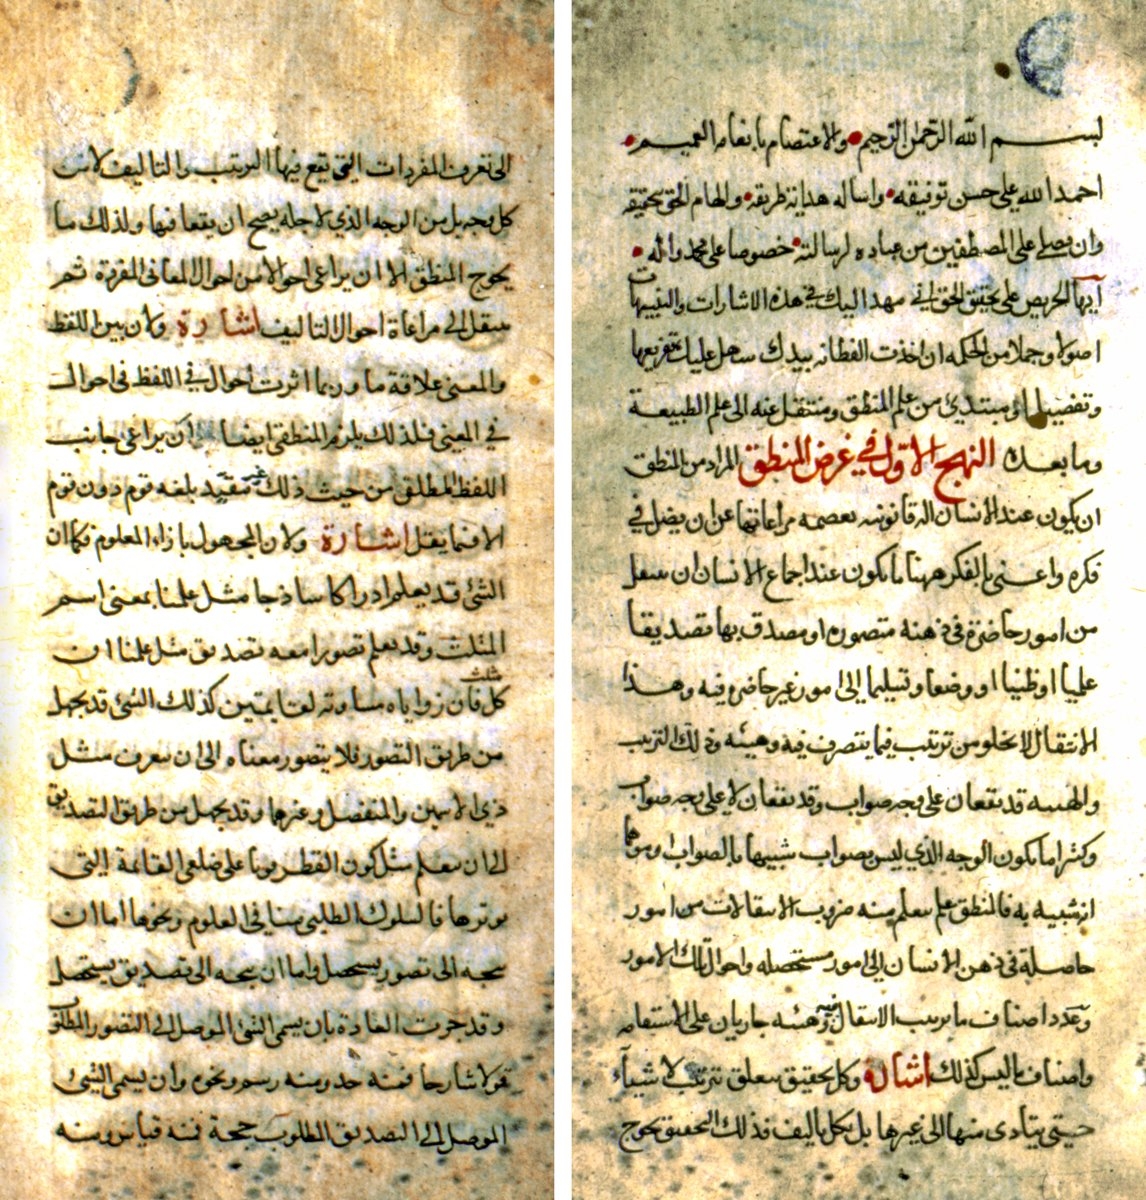 بسم الله الرحمن الرحيم والاعتصام بانعامه العميم
احمد الله على حسن توفيقه واساله هداية طريقه والهام الحق بتحقيقه
وان يصلي على المصطفين من عباده لرسالته خصوصا على محمد واله
ايها الحريص على تحقيق الحق اني مهد اليك في هذه الاشارات والتنبيهات
اصولا وجملا من الحكمه ان اخذت الفطانة بيدك سهل عليك تفريعها
وتفصيلها ومبتدئ من علم المنطق ومنتقل عنه الى علم الطبيعة
وما بعده النهج الاول في غرض المنطق المراد من المنطق
ان يكون عند الانسان آلة قانونيه تعصمه مراعاتها عن ان يضل في
فكره واعني بالفكر ههنا ما يكون عند اجماع الانسان ان ينتقل
من امور حاضرة في ذهنه متصوره او مصدق بها تصديقا
علميا او ظنيا او وضعا وتسليما الى امور غير حاضرة فيه وهذا
الانتقال لا يخلو من ترتيب فيما يتصرف فيه وهيئه وذلك الترتيب
والهيئه قد يقعان على وجه صواب وقد يقعان لا على وجه صواب
وكثيرا ما يكون الوجه الذي ليس بصواب شبيها بالصواب وموهما
انه شبيه به فالمنطق علم يتعلم منه ضروب الانتقالات من امور
حاصلة في ذهن الانسان الى امور مستحصله واحوال تلك الامور
وعدد اصناف ما ترتيب الانتقال فيه وهيئته جاريان على الاستقامه
واصناف ما ليس كذلك اشارة وكل تحقيق يتعلق بترتيب الاشياء
حيتى يتأدى منها الى غيرها بل بكل تاليف فذلك التحقيق يحوج
الى تعرف المفردات التي تقع فيها الترتيب والتاليف لا من
كل وجه بل من الوجه الذي لاجله يصح ان يقعا فيها ولذلك ما
يحوج المنطقي الا ان يراعي احوالا من احوال المعاني المفردة ثم
ينتقل الى مراعاة احوال التاليف اشارة ولان بين اللفظ
والمعنى علاقة ما وربما اثرت احوال في اللفظ في احوال
في المعنى فلذلك يلزم المنطقي ايضا ان يراعي جانب
اللفظ المطلق من حيث ذلك غير مقيد بلغه قوم دون قوم
الا فيما يقل اشارة ولان المجهول بازاء المعلوم فكما ان
الشئ قد يعلم ادراكا ساذجا مثل علمنا بمعنى اسم
المثلث وقد يعلم تصورا معه تصديق مثل علمنا ان
كل مثلث فان زواياه مساوية لقايمتين كذلك الشئ قد يجهل
من طريق التصور فلا يتصور معناه الى ان يتعرف مثل
ذي الاسمين والمنفصل وغيرهما وقد يجهل من طريق التصديق
الى ان يتعلم مثل كون القطر قويا على ضلعي القائمة التي
يوترها فالسلوك الطلبي منا في العلوم ونحوها اما ان
يتجه الى تصور يستحصل واما ان يتجه الى تصديق يستحصل
وقد جرت العادة بان يسمى الشئ الموصل الى التصور المطلوب
قولا شارحا فمنه حد ومنه رسم ونحوه وان يسمى الشئ
الموصل الى التصديق المطلوب حجة فمنه قياس ومنه